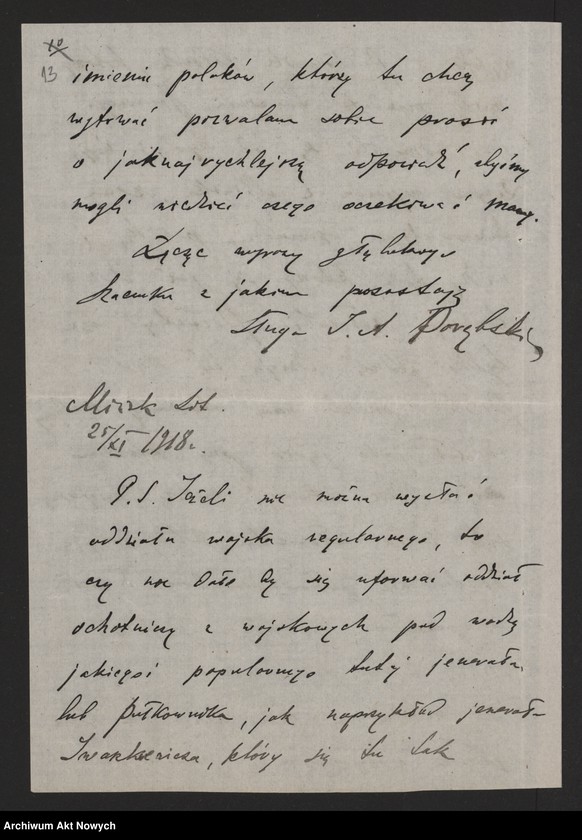 10
13
imieniu polaków, którzy tu chcą
wytrwać pozwalam sobie prosić
o jaknajrychlejszą odpowiedź, abyśmy
mogli wiedzieć czego oczekiwać mamy.
Łącząc wyrazy głębokiego
szacunku z jakim pozostaję
sługa J. A. Porębski
Mińsk Lit.
25/XI 1918 r.
P. S. Jeżeli nie można wysłać
oddziału wojska regularnego, to
czy nie dało by się uformować oddział
ochotniczy z wojskowych pod wodzą
jakiegoś popularnego tutaj jenerała
lub pułkownika, jak naprzykład jenerał-
Iwaszkiewicza, który się tu tak
Archiwum Akt Nowych